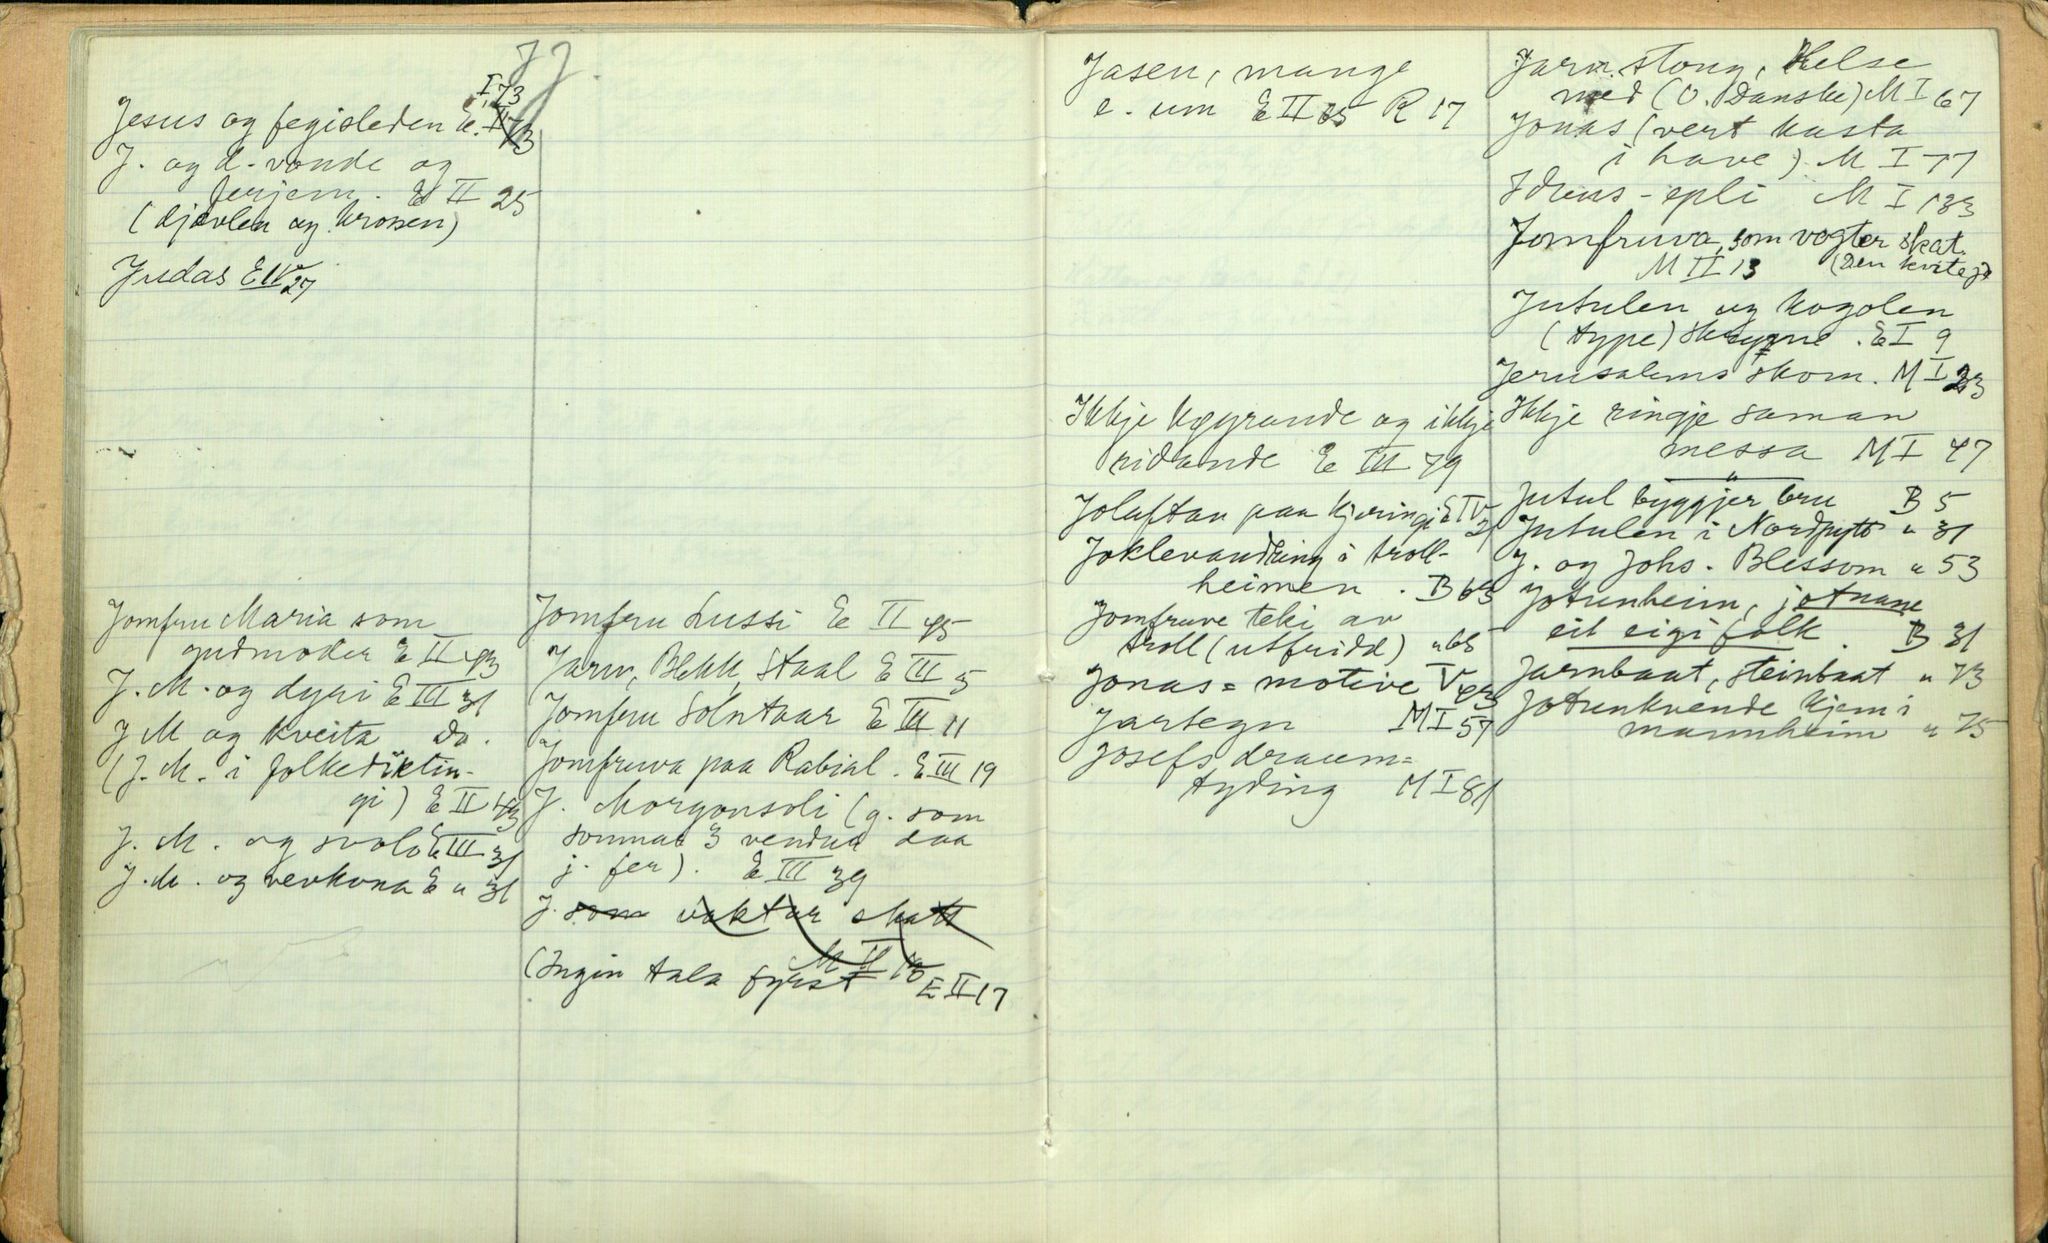 J J
I, 73
Jesus og fegisleden E. II 73
J. og d. vonde og
ferjem. E II 25
(djevlen og krossen)
Judas E IV 27
Jomfru Maria som
gudmoder E II 43
J. M. og dyri E III 31
J M og kveita do.
(J. M. i folkediktin-
gi) E II 43
J. M. og svolo E III 31
J. M. og revkona E " 31
Jomfru Lussi E II 45
Jarn, Blekk, Staal E III 5
Jomfru Solntaar E III 11
Jomfruva paa Rabial. E III 19
J. Morgonsoli (g. som
sonnar 3 vendur daa
j. fer). E III 39
J. som vaktar skatt
M II 13
(Ingin tala fyrst E II 17
Jasen, mange
e. um E II 65 R 17
Ikkje køyrande og ikkje
ridande E III 79
Joluftan paa Kjeringi E IV 21
Joklevandring i troll-
heimen. B 63
Jomfruve teki av
troll (utfridd) " 65
Jonas = motive V 43
Jartegn M I 57
Josefs draum=
tyding M I 81
Jarn. stong, Helse
med (O. Danske) M I 67
Jonas (vert kasta
i have). M I 77
Iduns-epli M I 133
Jomfruva, som vogter skat.
M II 13 (Den kvite j.
Jutulen og kogolen
(type) Skrymne. E I 9
Jerusalems skom. M I 23
Ikkje ringje saman
messa M I 47
"
Jutul byggjer bru B 5
Jutulen i Nordfytt " 31
J. og Johs. Blessom " 53
Jotunheim, jotnane
eit eigi folk. B 31
Jarnbaat, steinbaat " 73
Jotunkvende kjem i
mannheim " 75